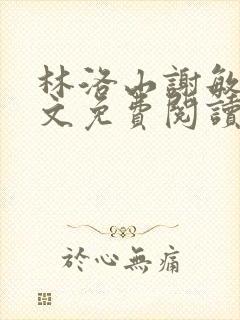 林洛山謝敏
文免費閱讀
於心無痛